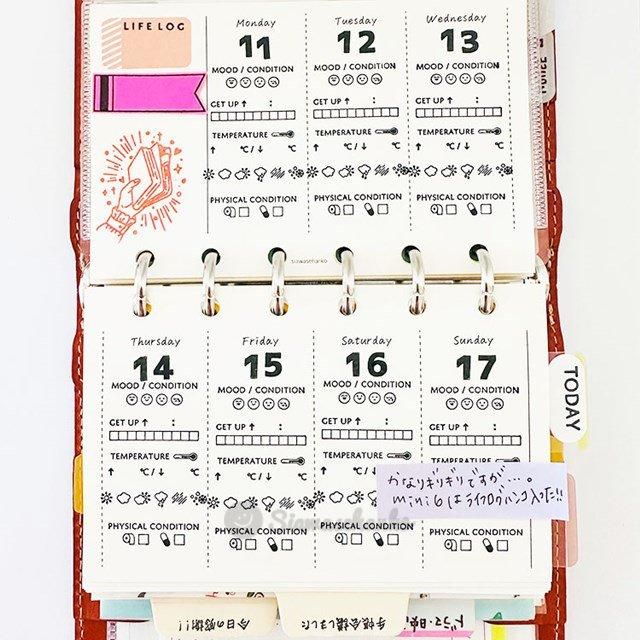 LIFE LOG
Monday
11
MOOD / CONDITION
GET UP ↑ :
TEMPERATURE
↑ ℃ / ↓ ℃
PHYSICAL CONDITION
Tuesday
12
MOOD / CONDITION
GET UP ↑ :
TEMPERATURE
↑ ℃ / ↓ ℃
PHYSICAL CONDITION
Wednesday
13
MOOD / CONDITION
GET UP ↑ :
TEMPERATURE
↑ ℃ / ↓ ℃
PHYSICAL CONDITION
siawasehanko
Thursday
14
MOOD / CONDITION
GET UP ↑ :
TEMPERATURE
↑ ℃ / ↓ ℃
PHYSICAL CONDITION
Friday
15
MOOD / CONDITION
GET UP ↑ :
TEMPERATURE
↑ ℃ / ↓ ℃
PHYSICAL CONDITION
Saturday
16
MOOD / CONDITION
GET UP ↑ :
TEMPERATURE
↑ ℃ / ↓ ℃
PHYSICAL CONDITION
Sunday
17
MOOD / CONDITION
GET UP ↑ :
TEMPERATURE
PHYSICAL CONDITION
TODAY
かなりギリギリですが…。
mini6はライフログハンコ入った!!
今日の感謝!!
手帳会議しました